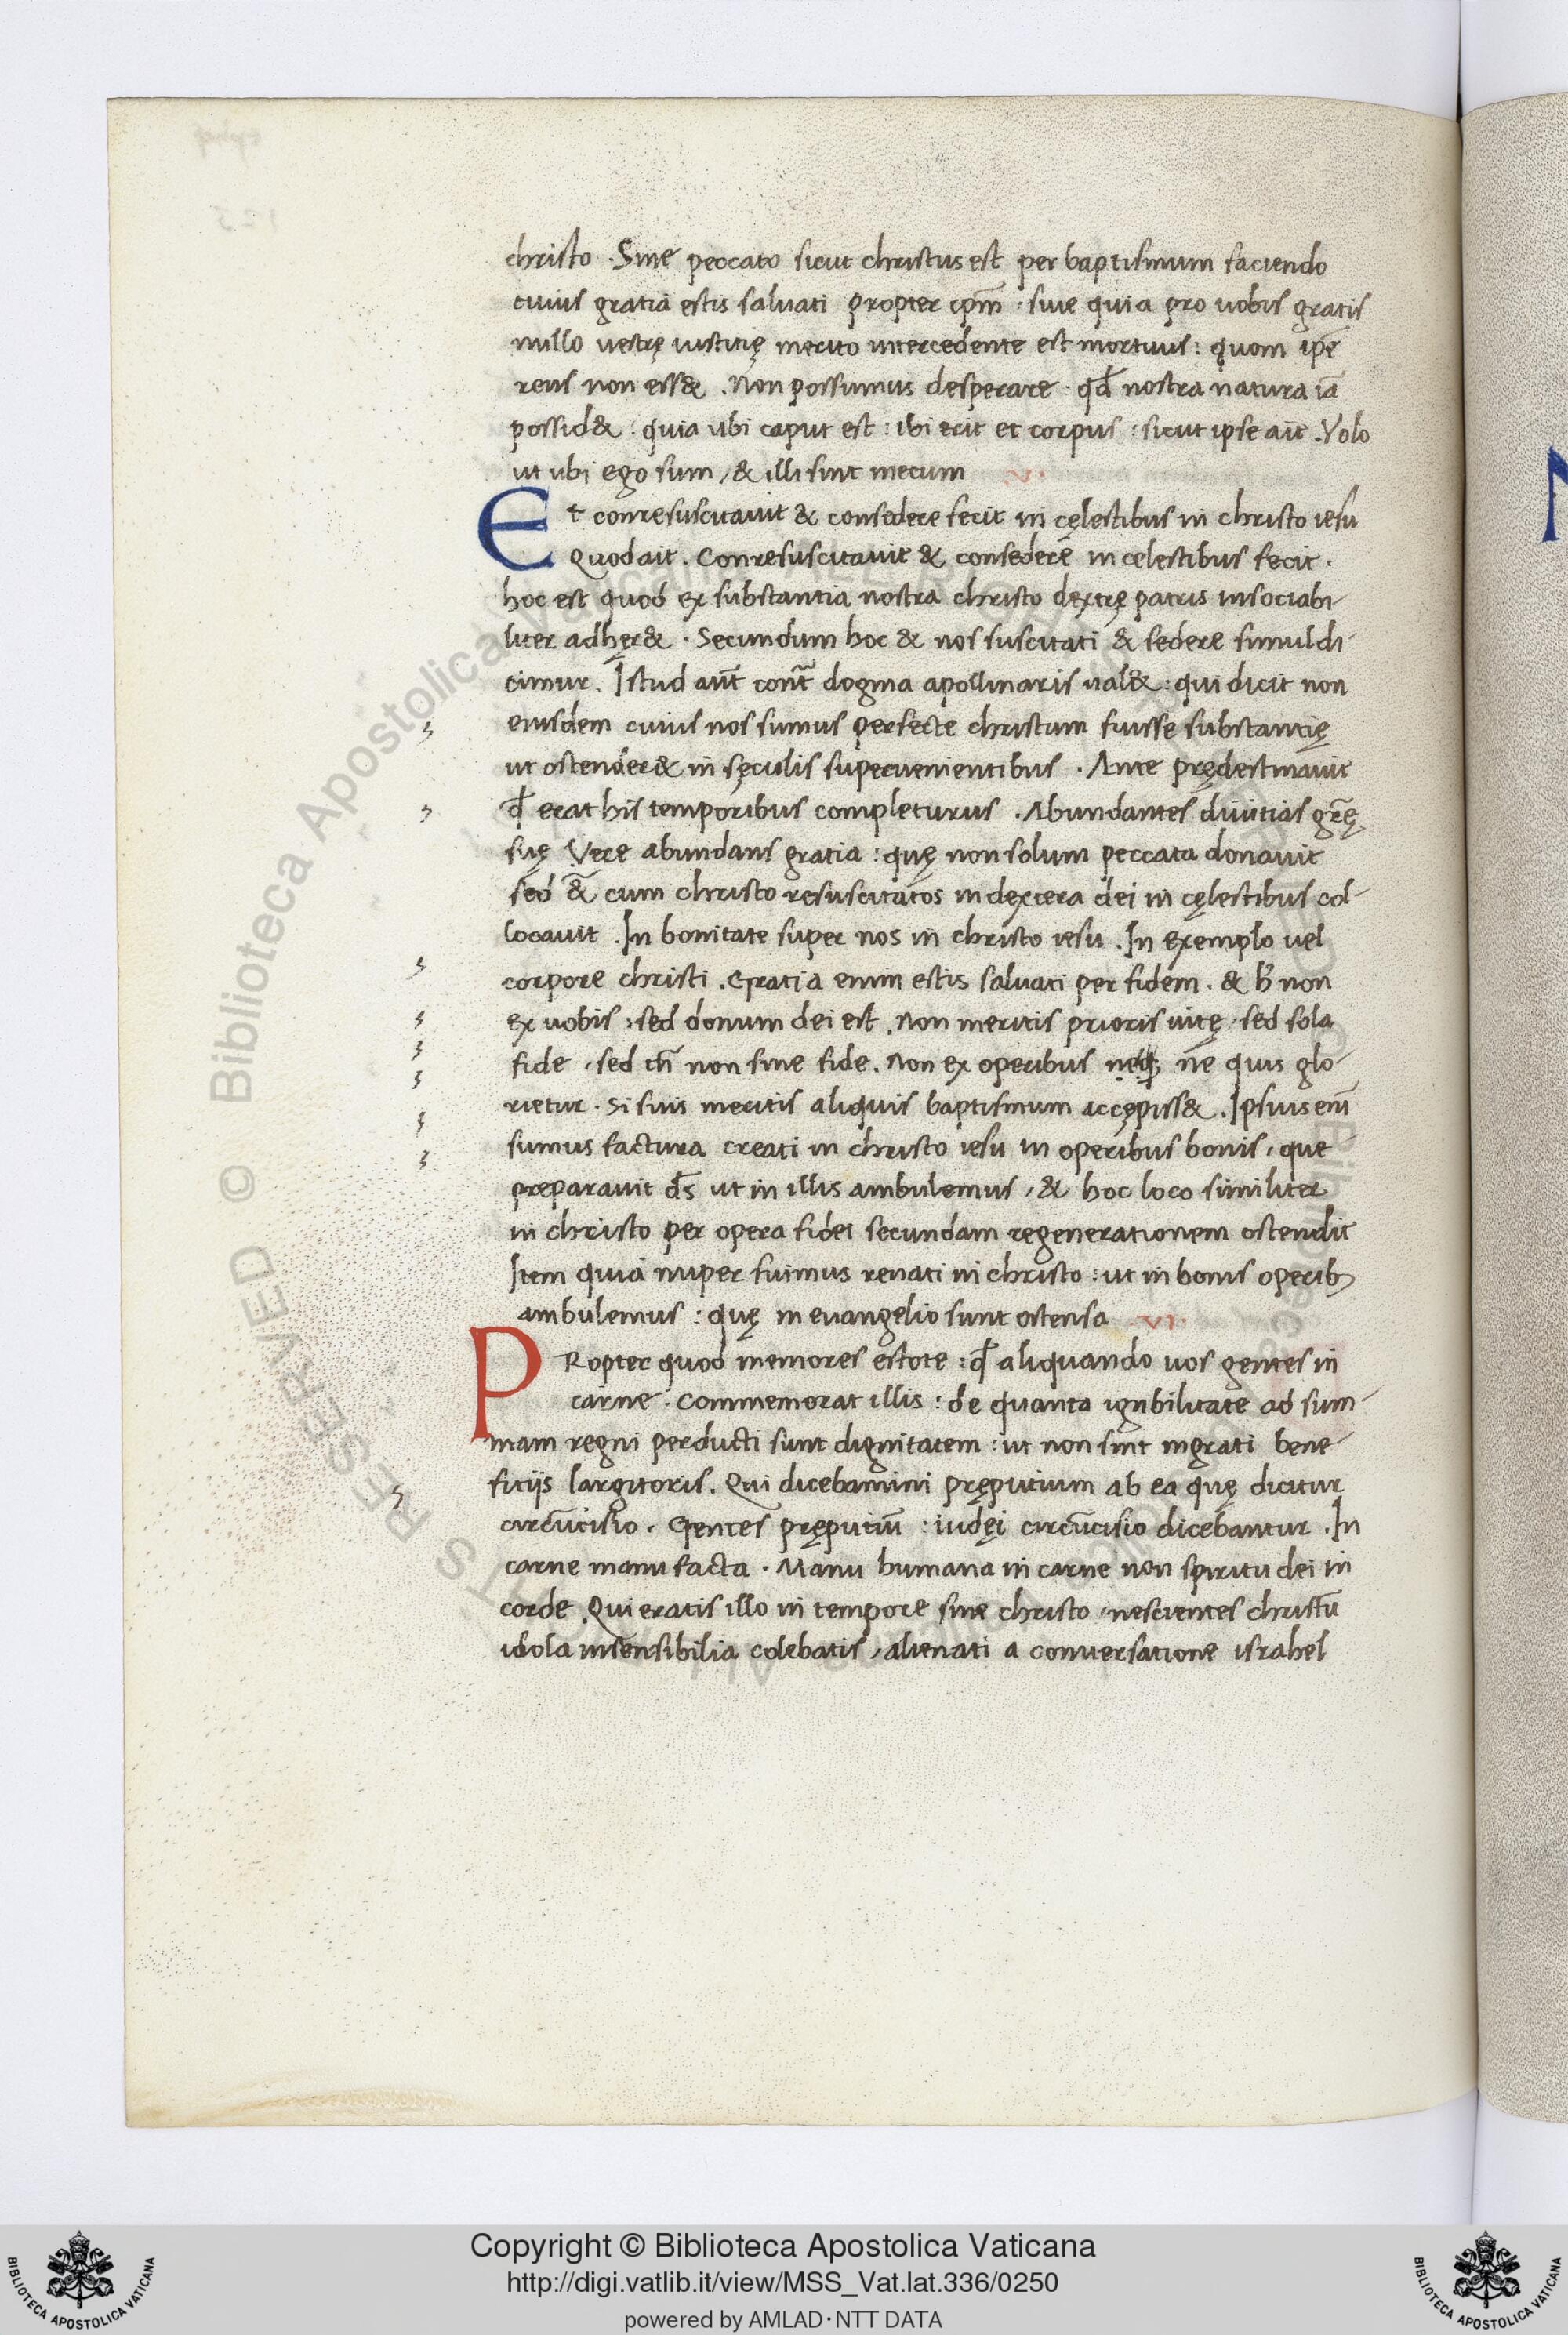 christo . Sine peccato sicut christus est per baptismum faciendo
cuius gratia estis saluati propter xp̄m . siue quia pro uobis gratis
nullo uestrę iustitię merito intercedente est mortuus : quom ip̄e
reus non ess& . Non possumus desperare . qđ nostra natura iā
possid& : quia ubi caput est : ibi erit et corpus : sicut ipse ait . Volo
ut ubi ego sum , & illi sint mecum v.
Et conresuscitauit & consedere fecit in cęlestibus in christo iesu
Quod ait . Conresuscitauit & consedere in celestibus fecit .
hoc est quod ex substantia nostra christo dextrę patris insociabi-
liter adhęr& . Secundum hoc & nos suscitati & sedere simul di-
cimur . Istud aūt cont̄ dogma apollinaris ual& : qui dicit non
eiusdem cuius nos sumus perfecte christum fuisse substantię
ut ostender& in sęculis superuenientibus . Ante prędestinauit
qđ erat his temporibus completurus . Abundantes diuitias gr̄ę
suę Vere abundans gratia : quę non solum peccata donauit
sed &̄ cum christo resuscitatos in dextera dei in cęlestibus col-
locauit . In bonitate super nos in christo iesu . In exemplo uel
corpore christi . Gratia enim estis saluati per fidem . & h̄ non
ex uobis : sed donum dei est . Non meritis prioris uitę , sed sola
fide , sed tn̄ non sine fide . Non ex operibus neq; ne quis glo-
rietur . Si suis meritis aliquis baptismum accępiss& . Ipsius enī
sumus factura creati in christo iesu in operibus bonis , que
preparauit d̄s ut in illis ambulemus , & hoc loco similiter
in christo per opera fidei secundam regenerationem ostendit
Item quia nuper fuimus renati in christo : ut in bonis operib;
ambulemus : quę in euangelio sunt ostensa . VI.
PRopter quod memores estote : qđ aliquando uos gentes in
carne . Commemorat illis : de quanta ignbilitate ad sum-
mam regni perducti sunt dignitatem : ut non sint ingrati bene-
ficijs largitoris . Qui dicebamini pręputium ab ea quę dicitur
circūcisio . Gentes pręputiū : iudęi circūcisio dicebantur . In
carne manu facta . Manu humana in carne non spiritu dei in
corde . Qui eratis illo in tempore sine christo , nescientes christū
idola insensibilia colebatis , alienati a conuersatione israhel
Copyright © Biblioteca Apostolica Vaticana
http://digi.vatlib.it/view/MSS_Vat.lat.336/0250
powered by AMLAD·NTT DATA
BIBLIOTECA APOSTOLICA VATICANA
BIBLIOTECA APOSTOLICA VATICANA